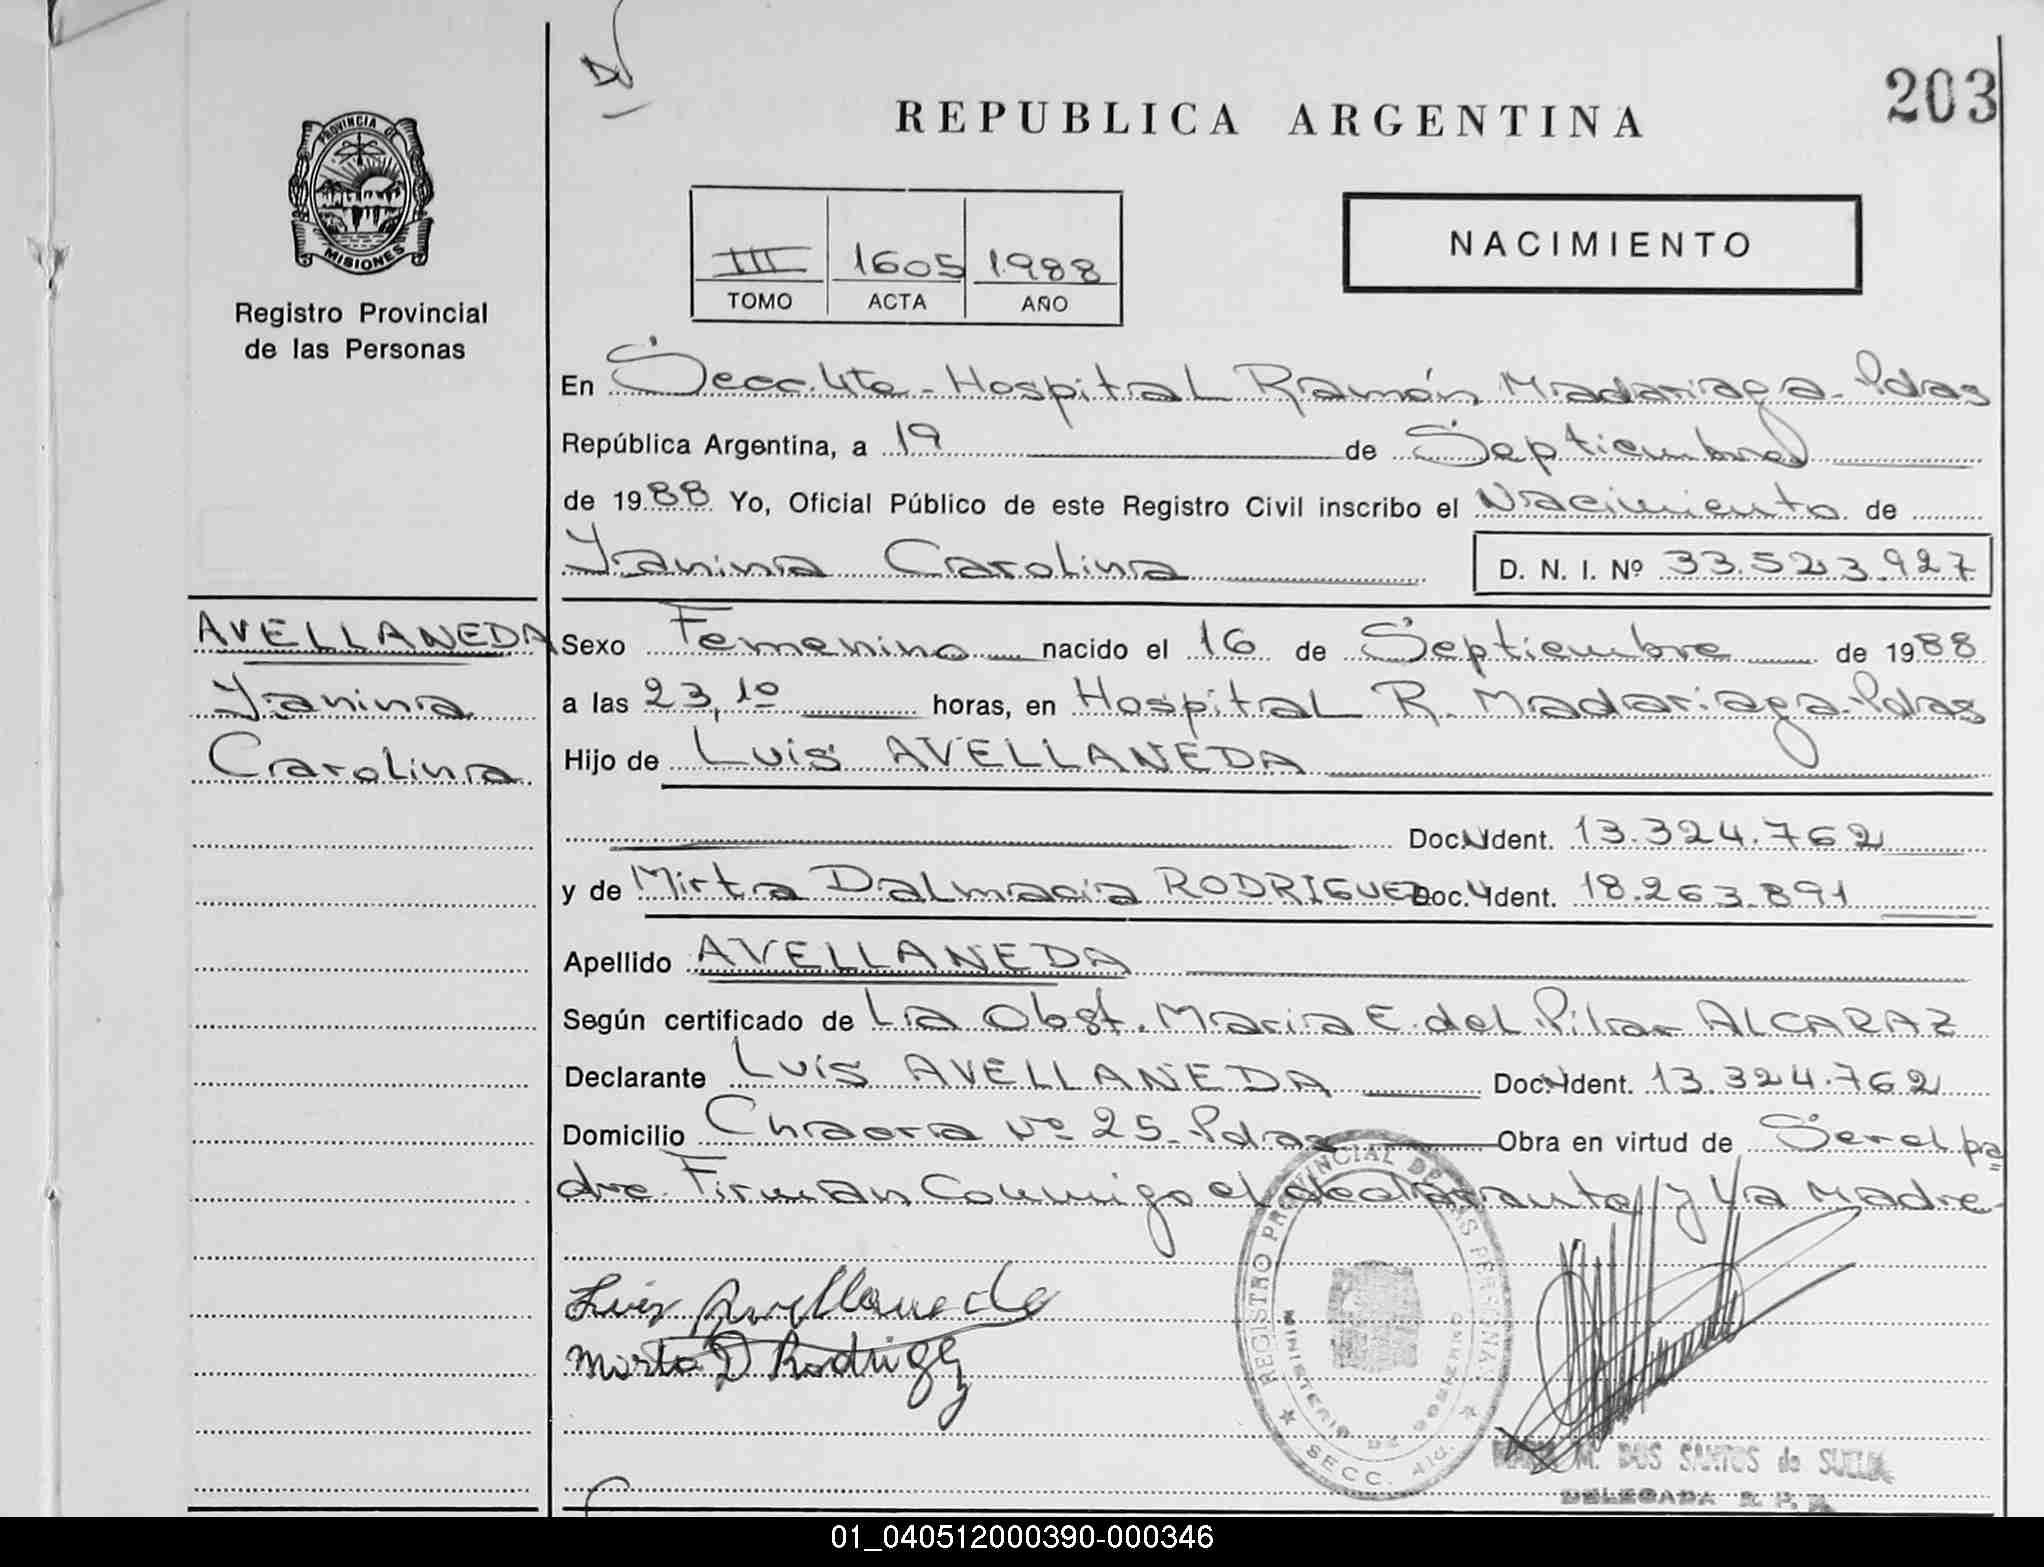 203
REPUBLICA ARGENTINA
PROVINCIA DE
MISIONES
Registro Provincial
de las Personas
III 1605 1988
TOMO ACTA AÑO
NACIMIENTO
En Secc. 4ta - Hospital Ramón Madariaga - Pdas
República Argentina, a 19 de Septiembre
de 1988 Yo, Oficial Público de este Registro Civil inscribo el Nacimiento de
Yanina Carolina D. N. I. Nº 33.523.927
AVELLANEDA
Yanina
Carolina
Sexo Femenino nacido el 16 de Septiembre de 1988
a las 23,10 horas, en Hospital R. Madariaga - Pdas
Hijo de Luis AVELLANEDA
Doc. Ident. 13.324.762
y de Mirta Dalmacia RODRIGUEZ Doc. Ident. 18.263.891
Apellido AVELLANEDA
Según certificado de La Obst. Maria E. del Pilar ALCARAZ
Declarante Luis AVELLANEDA Doc. Ident. 13.324.762
Domicilio Chacra Nº 25 - Pdas Obra en virtud de Ser el pa=
dre. Firman Conmigo el declarante y la Madre -
Luis Avellaneda
Mirta D Rodrigz
REGISTRO PROVINCIAL DE LAS PERSONAS
MINISTERIO DE GOBIERNO
SECC.
M. DOS SANTOS de
DELEGADA R. P.
01_040512000390-000346